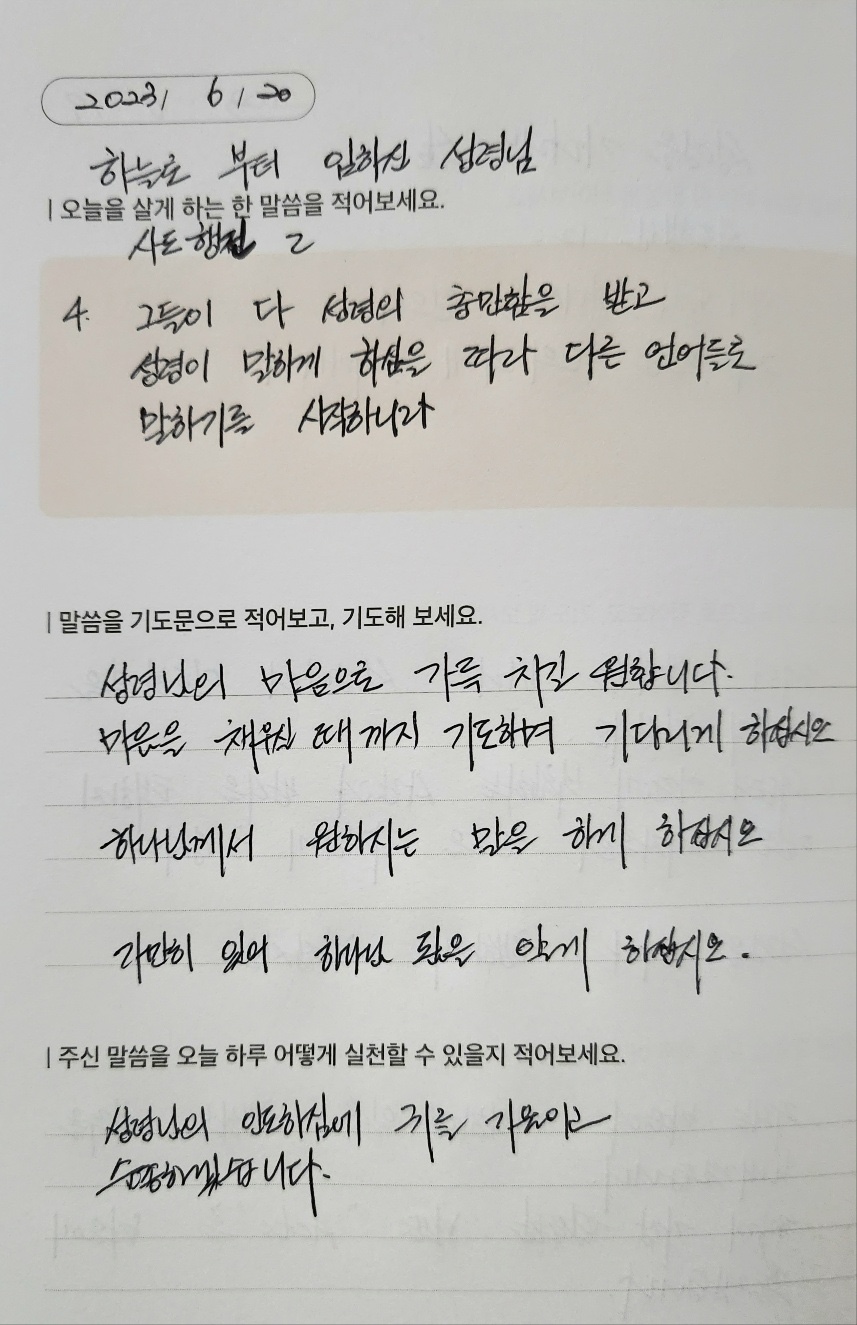 2023/ 6/ 20
하늘로 부터 임하신 성령님
| 오늘을 살게 하는 한 말씀을 적어보세요.
사도행전 2
4. 그들이 다 성령의 충만함을 받고
성령이 말하게 하심을 따라 다른 언어들로
말하기를 시작하니라
| 말씀을 기도문으로 적어보고, 기도해 보세요.
성령님의 마음으로 가득 차길 원합니다.
마음을 채우실 때까지 기도하며 기다리게 하십시오
하나님께서 원하시는 말을 하게 하십시오
가만히 있어 하나님 됨을 알게 하십시오.
| 주신 말씀을 오늘 하루 어떻게 실천할 수 있을지 적어보세요.
성령님의 인도하심에 귀를 기울이고
순종하겠습니다.